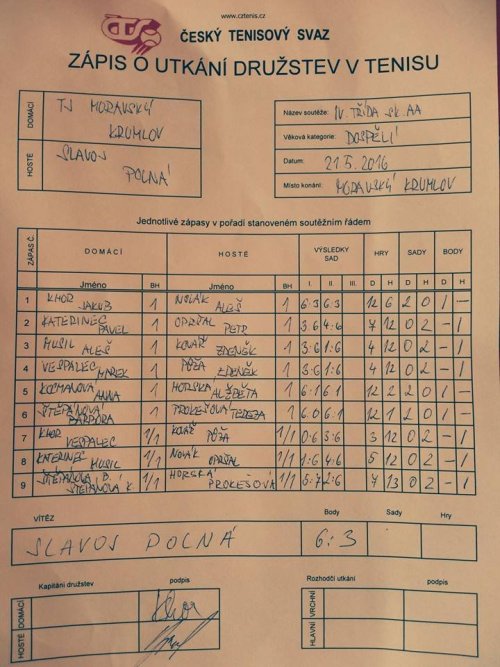 www.cztenis.cz
ČTS
ČESKÝ TENISOVÝ SVAZ
ZÁPIS O UTKÁNÍ DRUŽSTEV V TENISU
DOMÁCÍ TJ MORAVSKÝ KRUMLOV
HOSTÉ SLAVOJ POLNÁ
Název soutěže: IV. TŘÍDA SK. AA
Věková kategorie: DOSPĚLÍ
Datum: 21.5.2016
Místo konání: MORAVSKÝ KRUMLOV
Jednotlivé zápasy v pořadí stanoveném soutěžním řádem
ZÁPAS Č. DOMÁCÍ HOSTÉ VÝSLEDKY SAD HRY SADY BODY
Jméno BH Jméno BH I. II. III. D H D H D H
1 KHOR JAKUB 1 NOVÁK ALEŠ 1 6:3 6:3 12 6 2 0 1 –
2 KATERINEC PAVEL 1 OPRŠAL PETR 1 3:6 4:6 7 12 0 2 – 1
3 MUSIL ALEŠ 1 KOVÁŘ ZDENĚK 1 3:6 1:6 4 12 0 2 – 1
4 VESPALEC MAREK 1 PÓŽA ZDENĚK 1 3:6 1:6 4 12 0 2 – 1
5 KOCMANOVÁ ANNA 1 HORSKÁ ALŽBĚTA 1 6:1 6:1 12 2 2 0 1 –
6 ŠTĚPÁNOVÁ BARBORA 1 PROKEŠOVÁ TEREZA 1 6:0 6:1 12 1 2 0 1 –
7 KHOR VESPALEC 1/1 KOVÁŘ PÓŽA 1/1 0:6 3:6 3 12 0 2 – 1
8 KATERINEC MUSIL 1/1 NOVÁK OPRŠAL 1/1 1:6 4:6 5 12 0 2 – 1
9 ŠTĚPÁNOVÁ B. ŠTĚPÁNOVÁ K. 1/1 HORSKÁ PROKEŠOVÁ 1/1 5:7 2:6 7 13 0 2 – 1
VÍTĚZ Body Sady Hry
SLAVOJ POLNÁ 6:3
Kapitáni družstev podpis Rozhodčí utkání podpis
DOMÁCÍ Khor VRCHNÍ
HOSTÉ HLAVNÍ